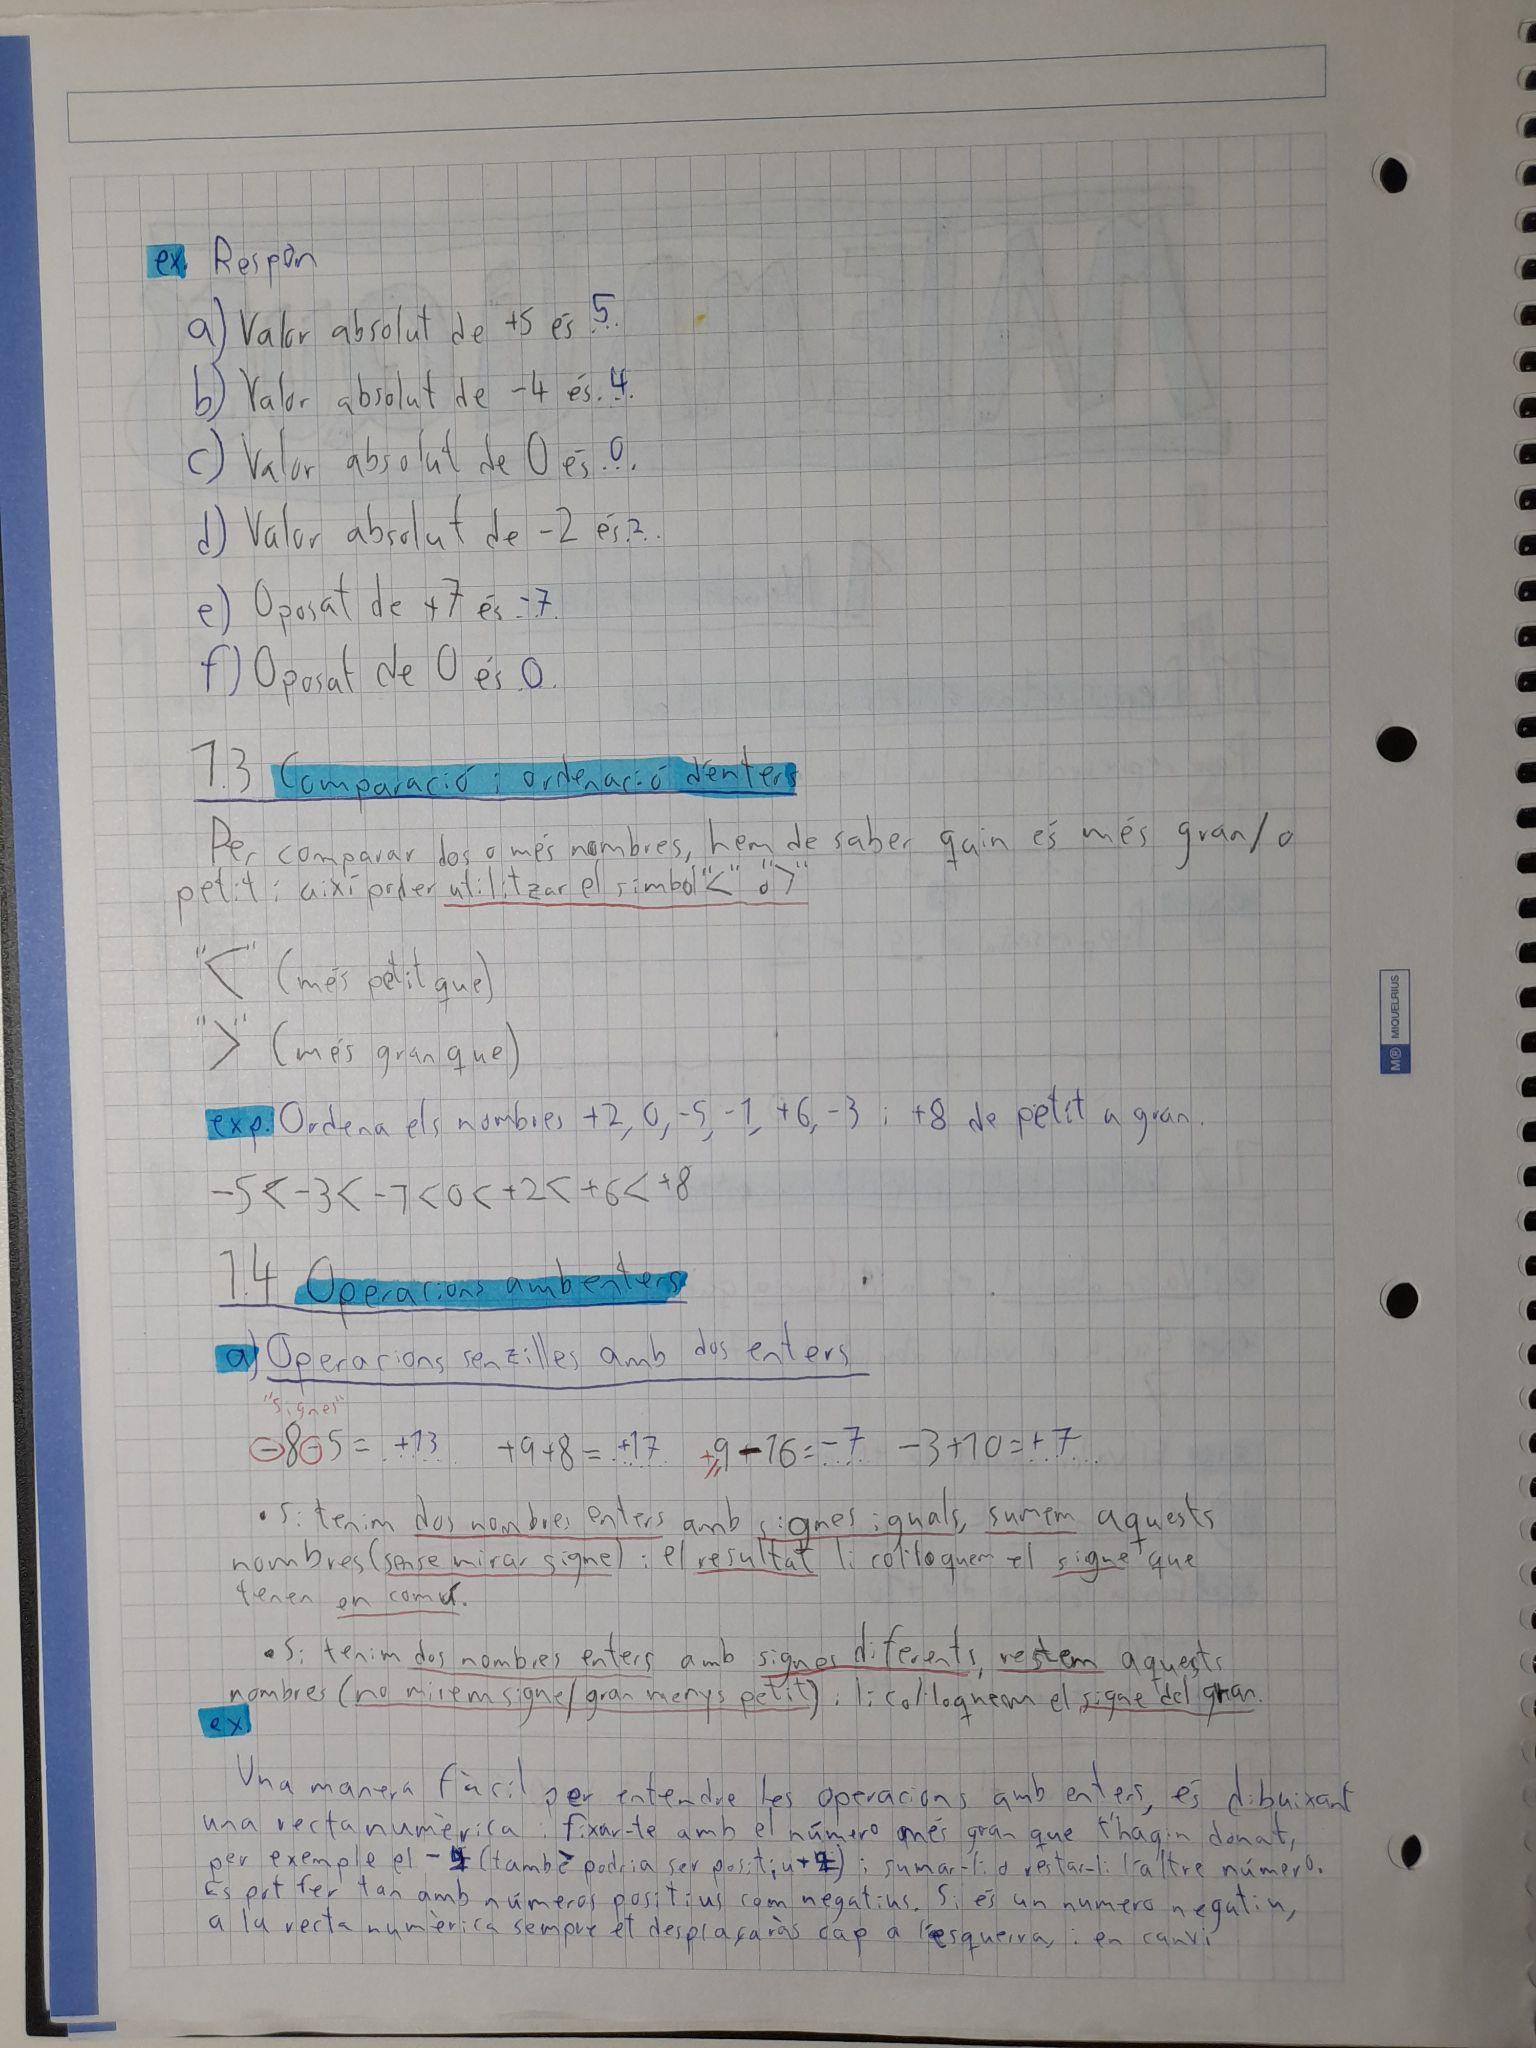 ex. Respòn
a) Valor absolut de +5 és 5.
b) Valor absolut de -4 és. 4.
c) Valor absolut de 0 és .0.
d) Valor absolut de -2 és.2..
e) Oposat de +7 és -7.
f) Oposat de 0 és 0.
1.3 Comparació i ordenació d'enters
Per comparar dos o més nombres, hem de saber quin és més gran/o
petit i així poder utilitzar el símbol "<" o ">"
"<" (més petit que)
">" (més gran que)
exp: Ordena els nombres +2, 0, -5, -1, +6, -3 i +8 de petit a gran.
-5 < -3 < -1 < 0 < +2 < +6 < +8
1.4 Operacions amb enters
a) Operacions senzilles amb dos enters
"signes"
-8-5= +13 +9+8= +17 +9-16=-7 -3+10=+7
• Si tenim dos nombres enters amb signes iguals, sumem aquests
nombres (sense mirar signe) i el resultat li col·loquem el signe que
tenen en comú.
• Si tenim dos nombres enters amb signes diferents, restem aquests
nombres (no mirem signe/gran menys petit) i li col·loquem el signe del gran.
ex
Una manera fàcil per entendre les operacions amb enters, és dibuixant
una recta numèrica i fixar-te amb el número més gran que t'hagin donat,
per exemple el (també podria ser positiu) i sumar-li o restar-li l'altre número.
Es pot fer tan amb números positius com negatius. Si és un numero negatiu,
a la recta numèrica sempre et desplaçaràs cap a l'esquerra, i en canvi
M® MIQUELRIUS